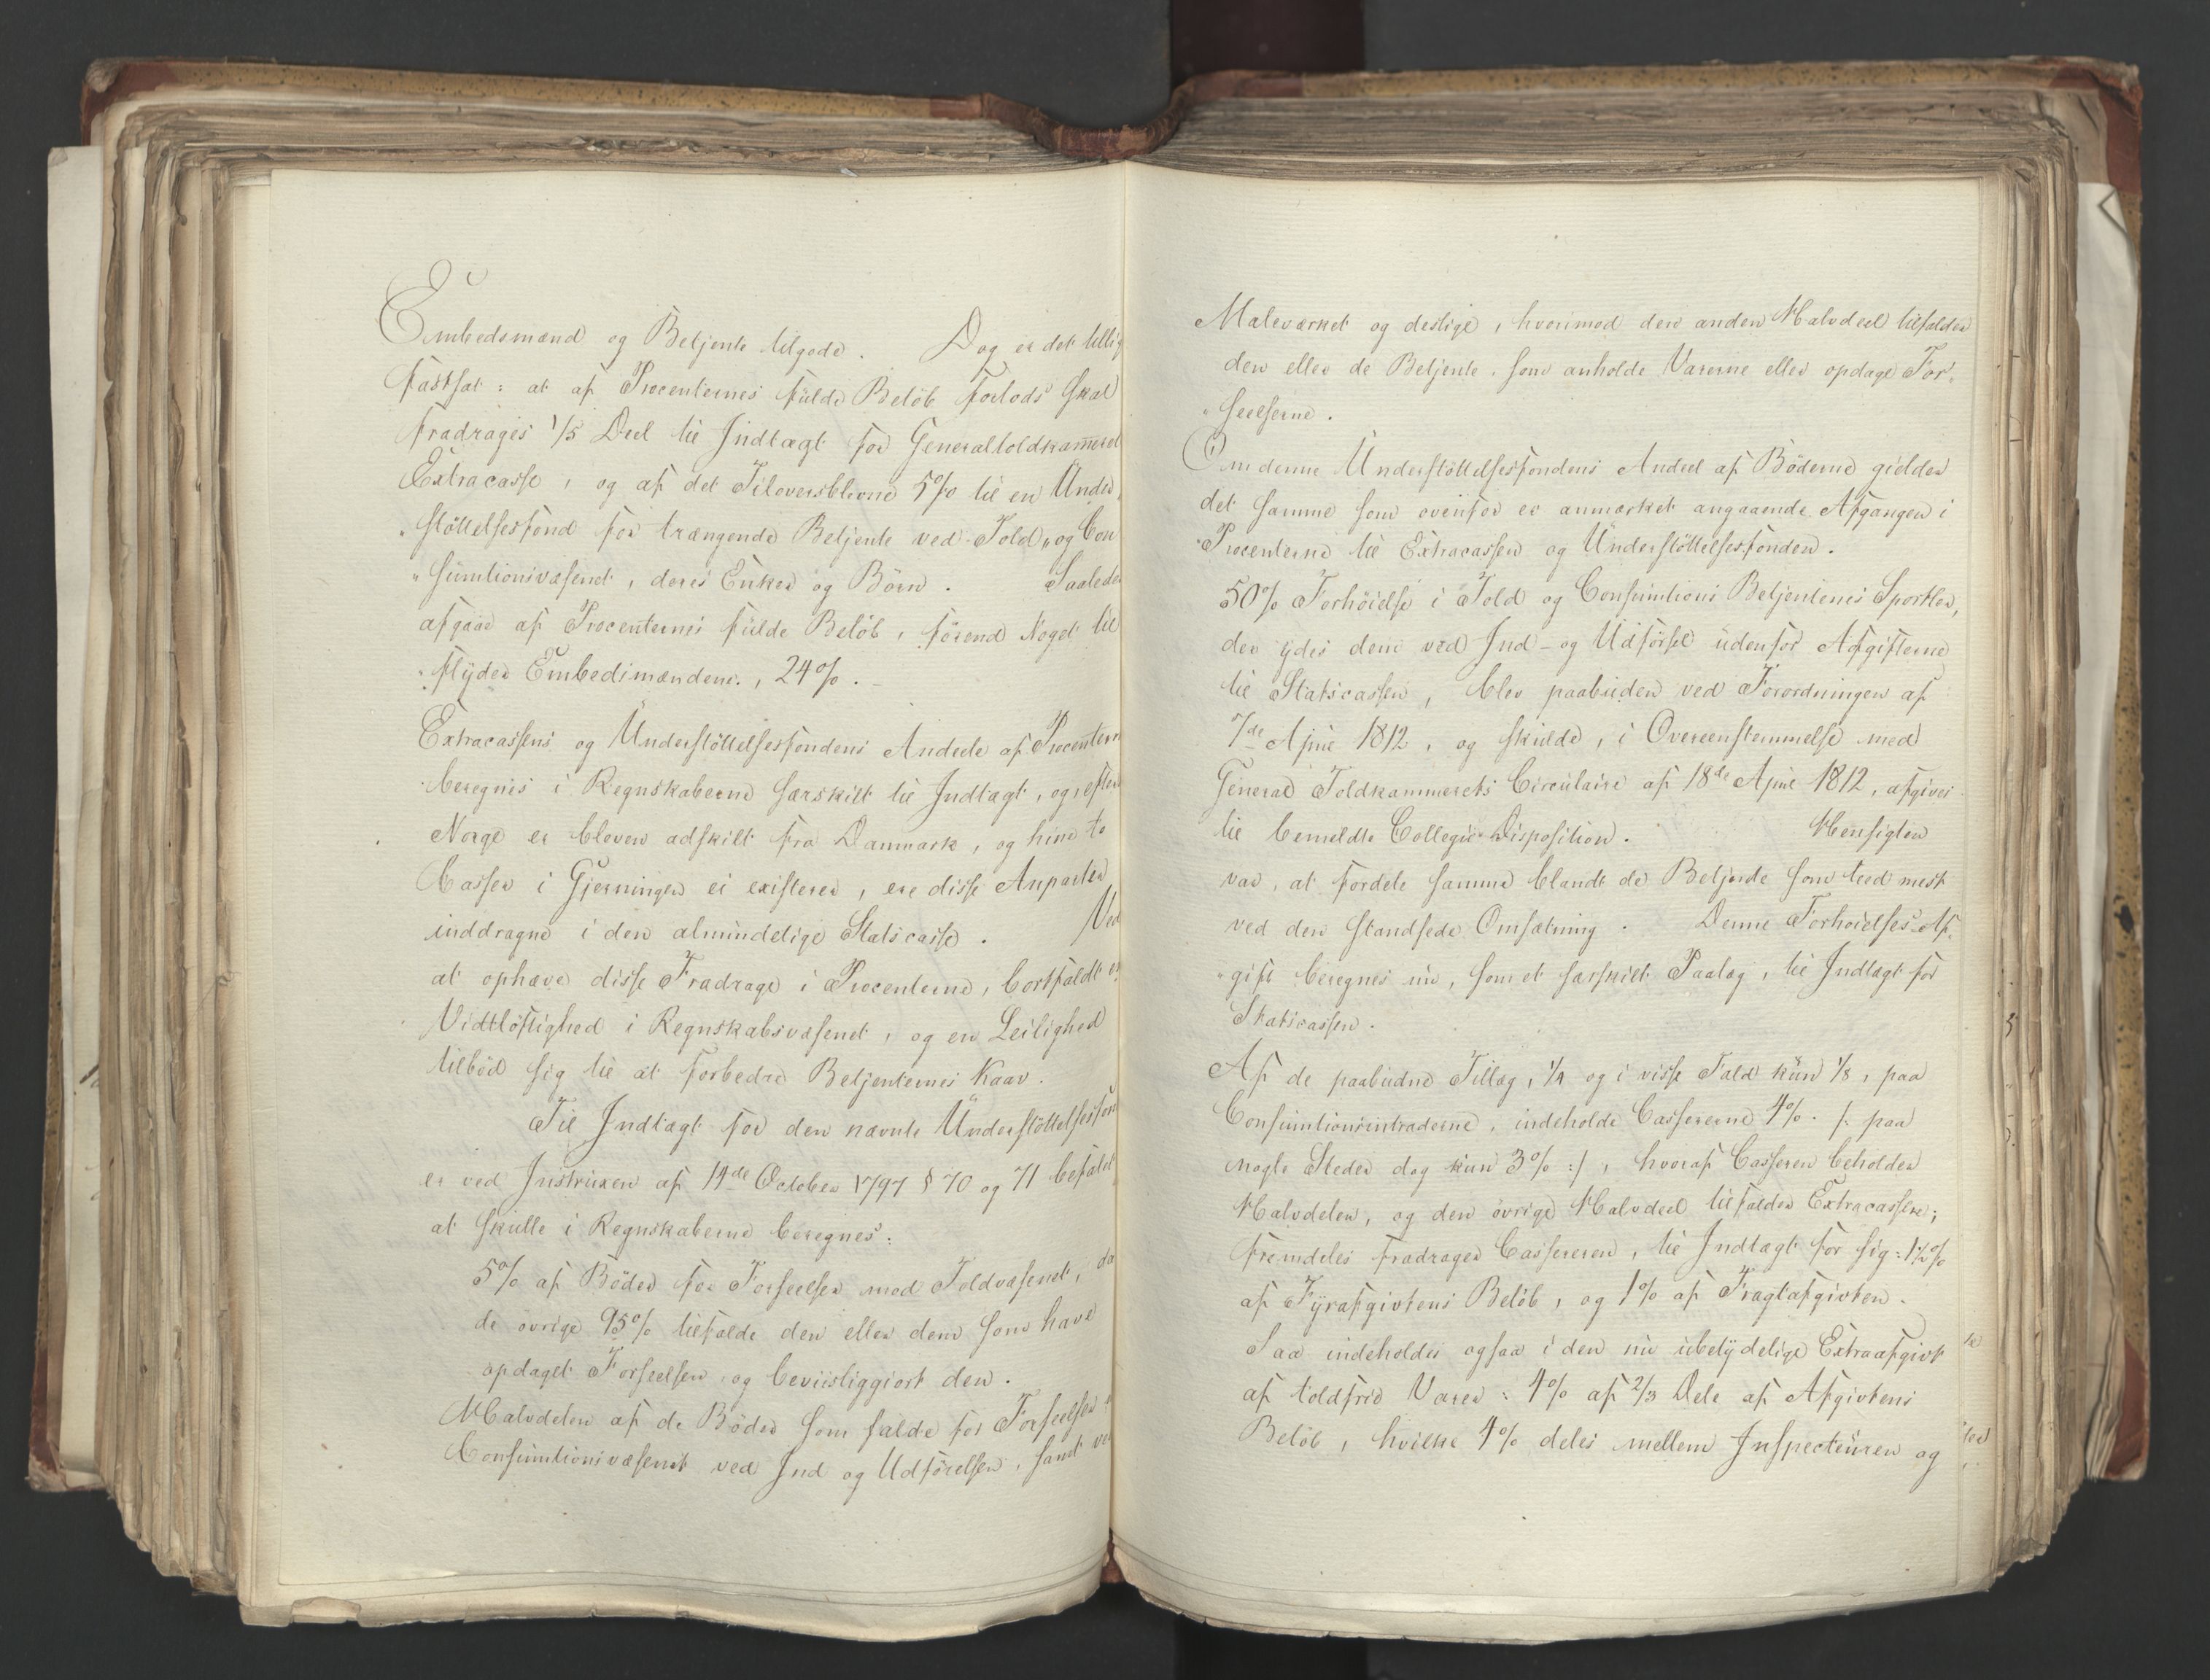 Embedsmænd og Betjente tilgode. Dog er det tillig
fastsat: at af Procenternes fulde Beløb forlods skal
fradrages 1/5 Deel til Indtægt for Generaltoldkam̅eret
Extracasse, og af det Tiloversblevne 5% til en Under„
„støttelsesfond for trængende Betjente ved Told„ og Con
„sumtionsvæsenet, deres Enker og Børn. Saalede
afgaae af Procenternes fulde Beløb, førend Noget til
„flyder Embedsmændene, 24%.
Extracassens og Understøttelsesfondens Andeele af Procentern
beregnes i Regnskaberne særskilt til Indtægt, og, efter
Norge er bleven adskilt fra Danmark, og hine to
Casser i Gjerningen ei existerer, ere disse Anparter
inddragne i den almindelige Statscasse. Ved
at ophæve disse Fradrage i Procenterne, bortfaldt e
Vidtløftighed i Regnskabsvæsenet, og en Leilighed
tilbød sig til at forbedre Betjenternes Kaar.
Til Indtægt for den nævnte Understøttelsesfon
er ved Instruxen af 14de October 1797 § 70 og 71 befalet
at skulle i Regnskaberne beregnes:
5% af Bøder for Forseelser mod Toldvæsenet, da
de øvrige 95% tilfalde den eller dem som have
opdaget Forseelsen og beviisliggiort den.
Halvdelen af de Bøder som falde for Forseelser
Consumtionsvæsenet ved Ind og Udførelsen, samt ve
Maleværket og deslige, hvorimod den anden Halvdeel tilfalder
den eller de Betjente, som anholde Varerne eller opdage For„
„seelserne.
Om denne Understøttelsesfondens Andeel af Bøderne gielder
det samme som ovenfor er anmærket angaaende Afgangen i
Procenterne til Extracassen og Understøttelsesfonden.
50% Forhøielse i Told og Consumtions Betjentenes Sportler,
der ydes dem ved Ind- og Udførsel udenfor Afgifterne
til Statscassen, blev paabuden ved Forordningen af
7de April 1812, og skulde, i Overeenstemmelse med
General Toldkammerets Circulaire af 18de April 1812, afgives
til bemeldte Collegii Disposition. Hensigten
var, at fordele samme blandt de Betjente som leed mest
ved den standsede Omsætning. Denne Forhøielses Af„
„gift beregnes nu, som et særskilt Paalæg, til Indtægt for
Statscassen.
Af de paabudne Tillæg, 1/4 og i visse Fald kun 1/8, paa
Consumtionsintraderne, indeholde Cassererne 4% /: paa
nogle Steder dog kun 3% :/, hvoraf Casseren beholder
Halvdelen, og den øvrige Halvdeel tilfalder Extracassen;
fremdeles fradrager Cassereren, til Indtægt for sig: 1½%
af Fyrafgivtens Beløb, og 1% af Fragtafgivten.
Saa indeholdes ogsaa i den nu ubetydelige Extraafgivt
af toldfrie Varer: 4% af 2/3 Dele af Afgivtens
Beløb, hvilke 4% deles mellem Inspecteuren og